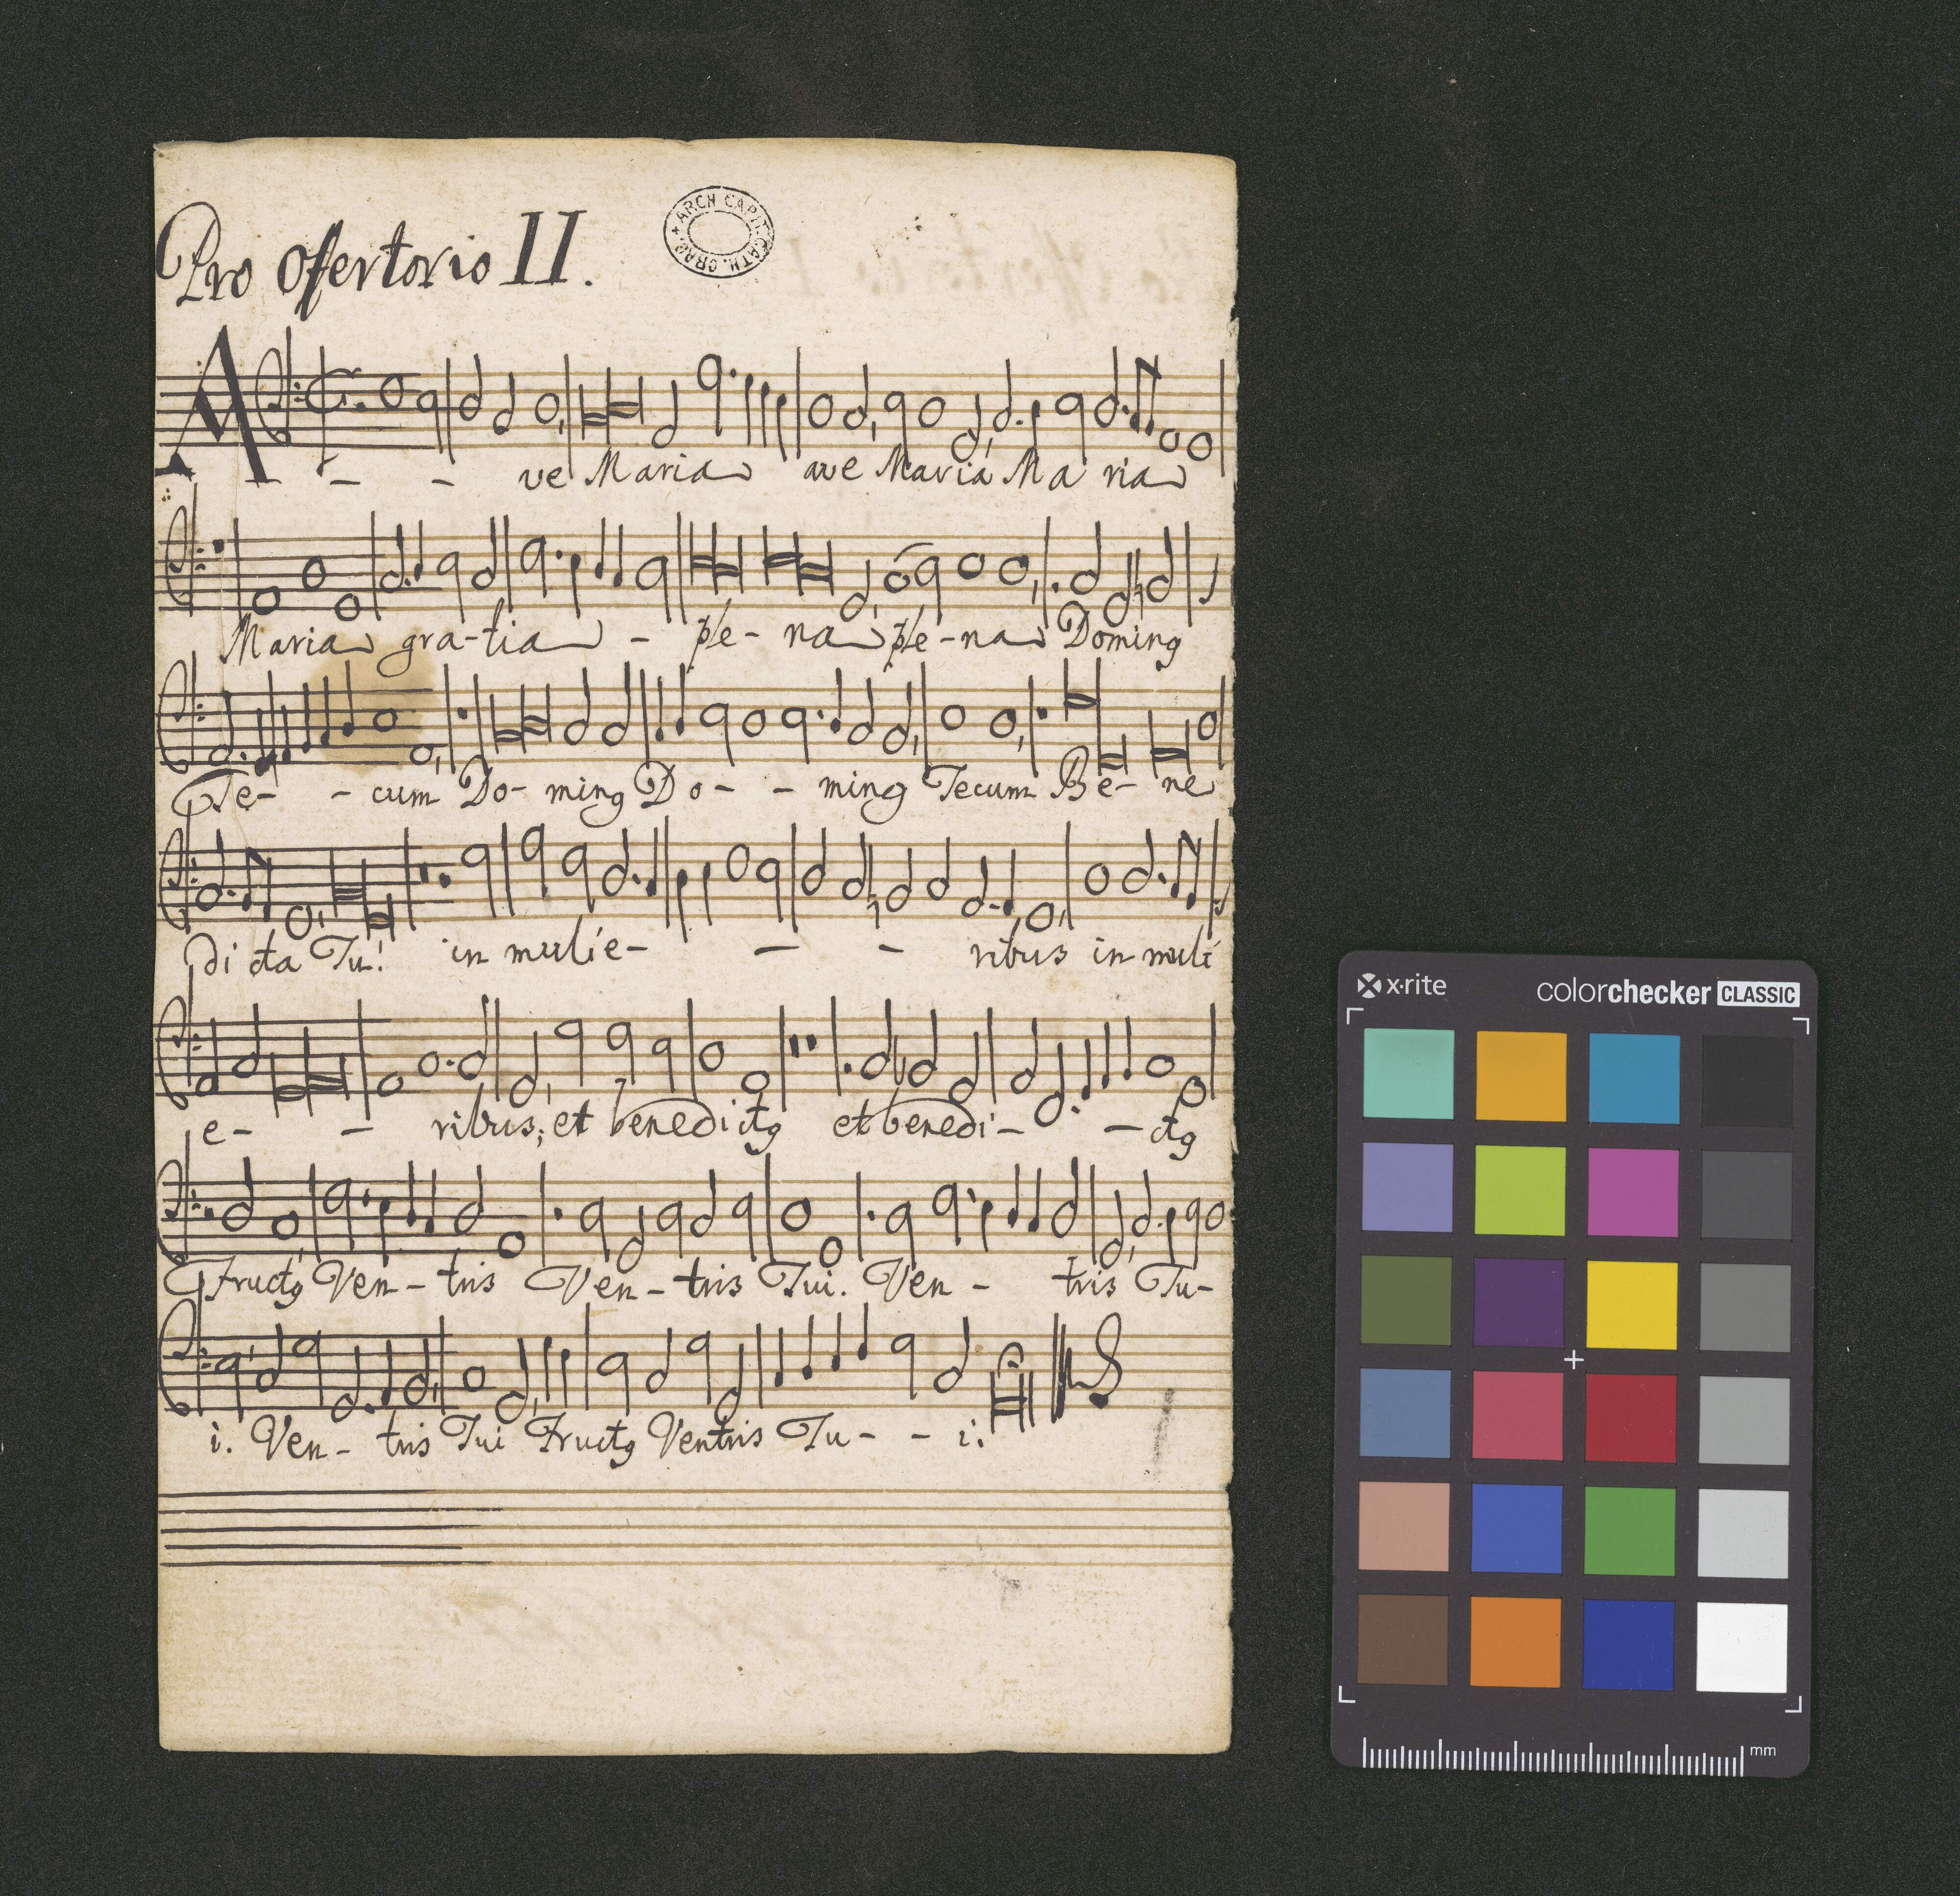 Pro Ofertorio II.
ARCH CAPIT. CATH. CRAC.
A - - ve Maria ave Maria Ma ria
Maria gra-tia - ple- na ple-na Doming
Te- - cum Do- ming Do- - ming Tecum Be- ne
di cta Tu! in mulie- - - ribus in muli
e- - ribus; et benedictg et benedi- - ctg
Fructg Ven- tris Ven- tris Tui. Ven - tris Tu-
i. Ven- tris Tui Fructg Ventris Tu- - i.
x·rite colorchecker CLASSIC
mm